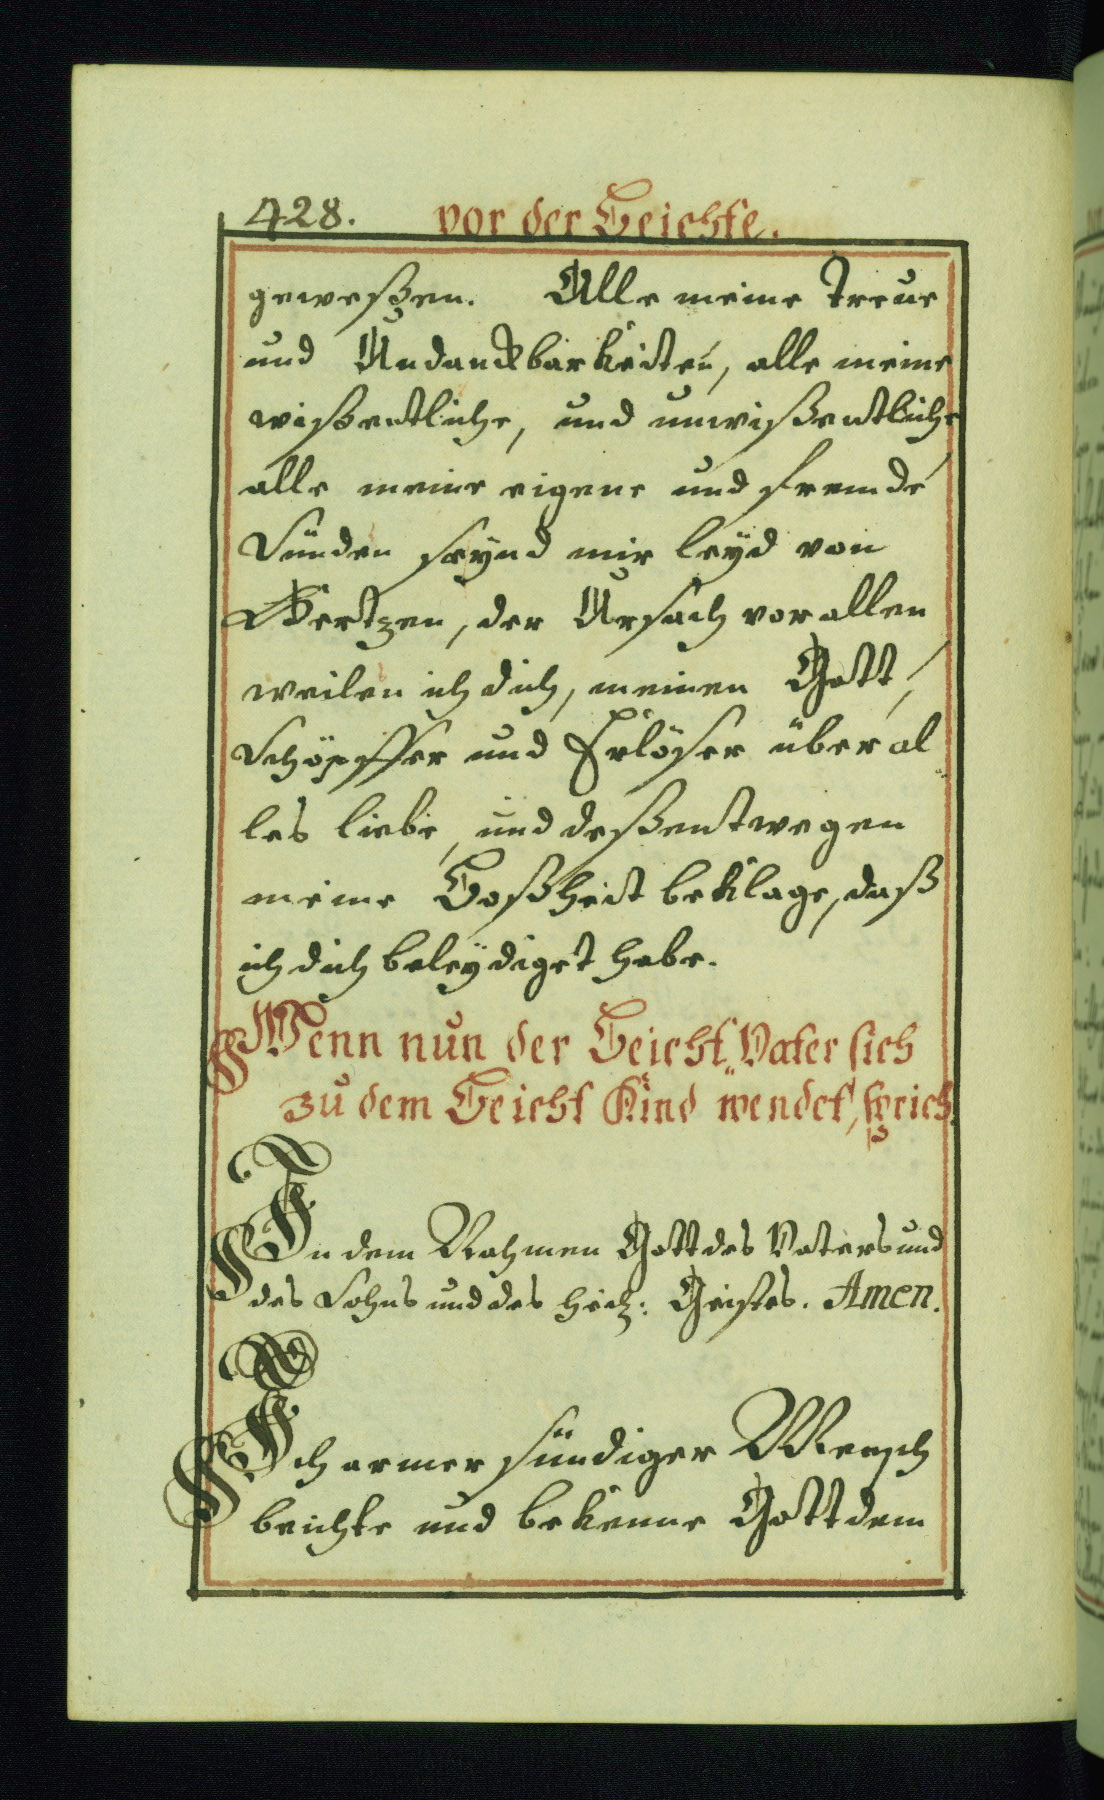 428. vor der Beichte.
geweßen. Alle meine Treue
und Undanckbarkeiten, alle meine
wißentliche, und unwißentliche
alle meine eigene und fremde
Sünden seynd mir leyd von
Hertzen, der Ursach vor allen
weilen ich dich, meinen Gott,
Schöpffer und Erlöser über al=
les liebe, und deßentwegen
meine Boßheit beklage, daß
ich dich beleydiget habe.
Wenn nun der Beicht=Vater sich
zu dem Beicht Kind wendet, sprich.
In dem Nahmen Gott des Vaters und
des Sohns und des heil: Geistes. Amen.
Ich armer sündiger Mensch
beichte und bekenne Gott dem